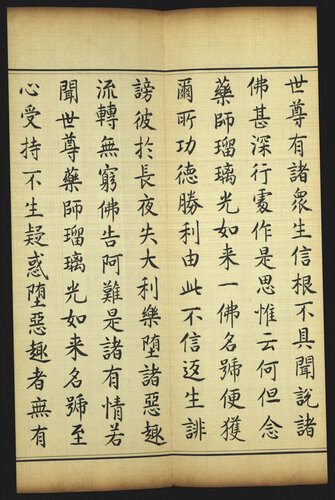 世尊有諸衆生信根不具聞說諸
佛甚深行處作是思惟云何但念
藥師瑠璃光如来一佛名號便獲
爾所功德勝利由此不信返生誹
謗彼於長夜失大利樂墮諸惡趣
流轉無窮佛告阿難是諸有情若
聞世尊藥師瑠璃光如来名號至
心受持不生疑惑墮惡趣者無有